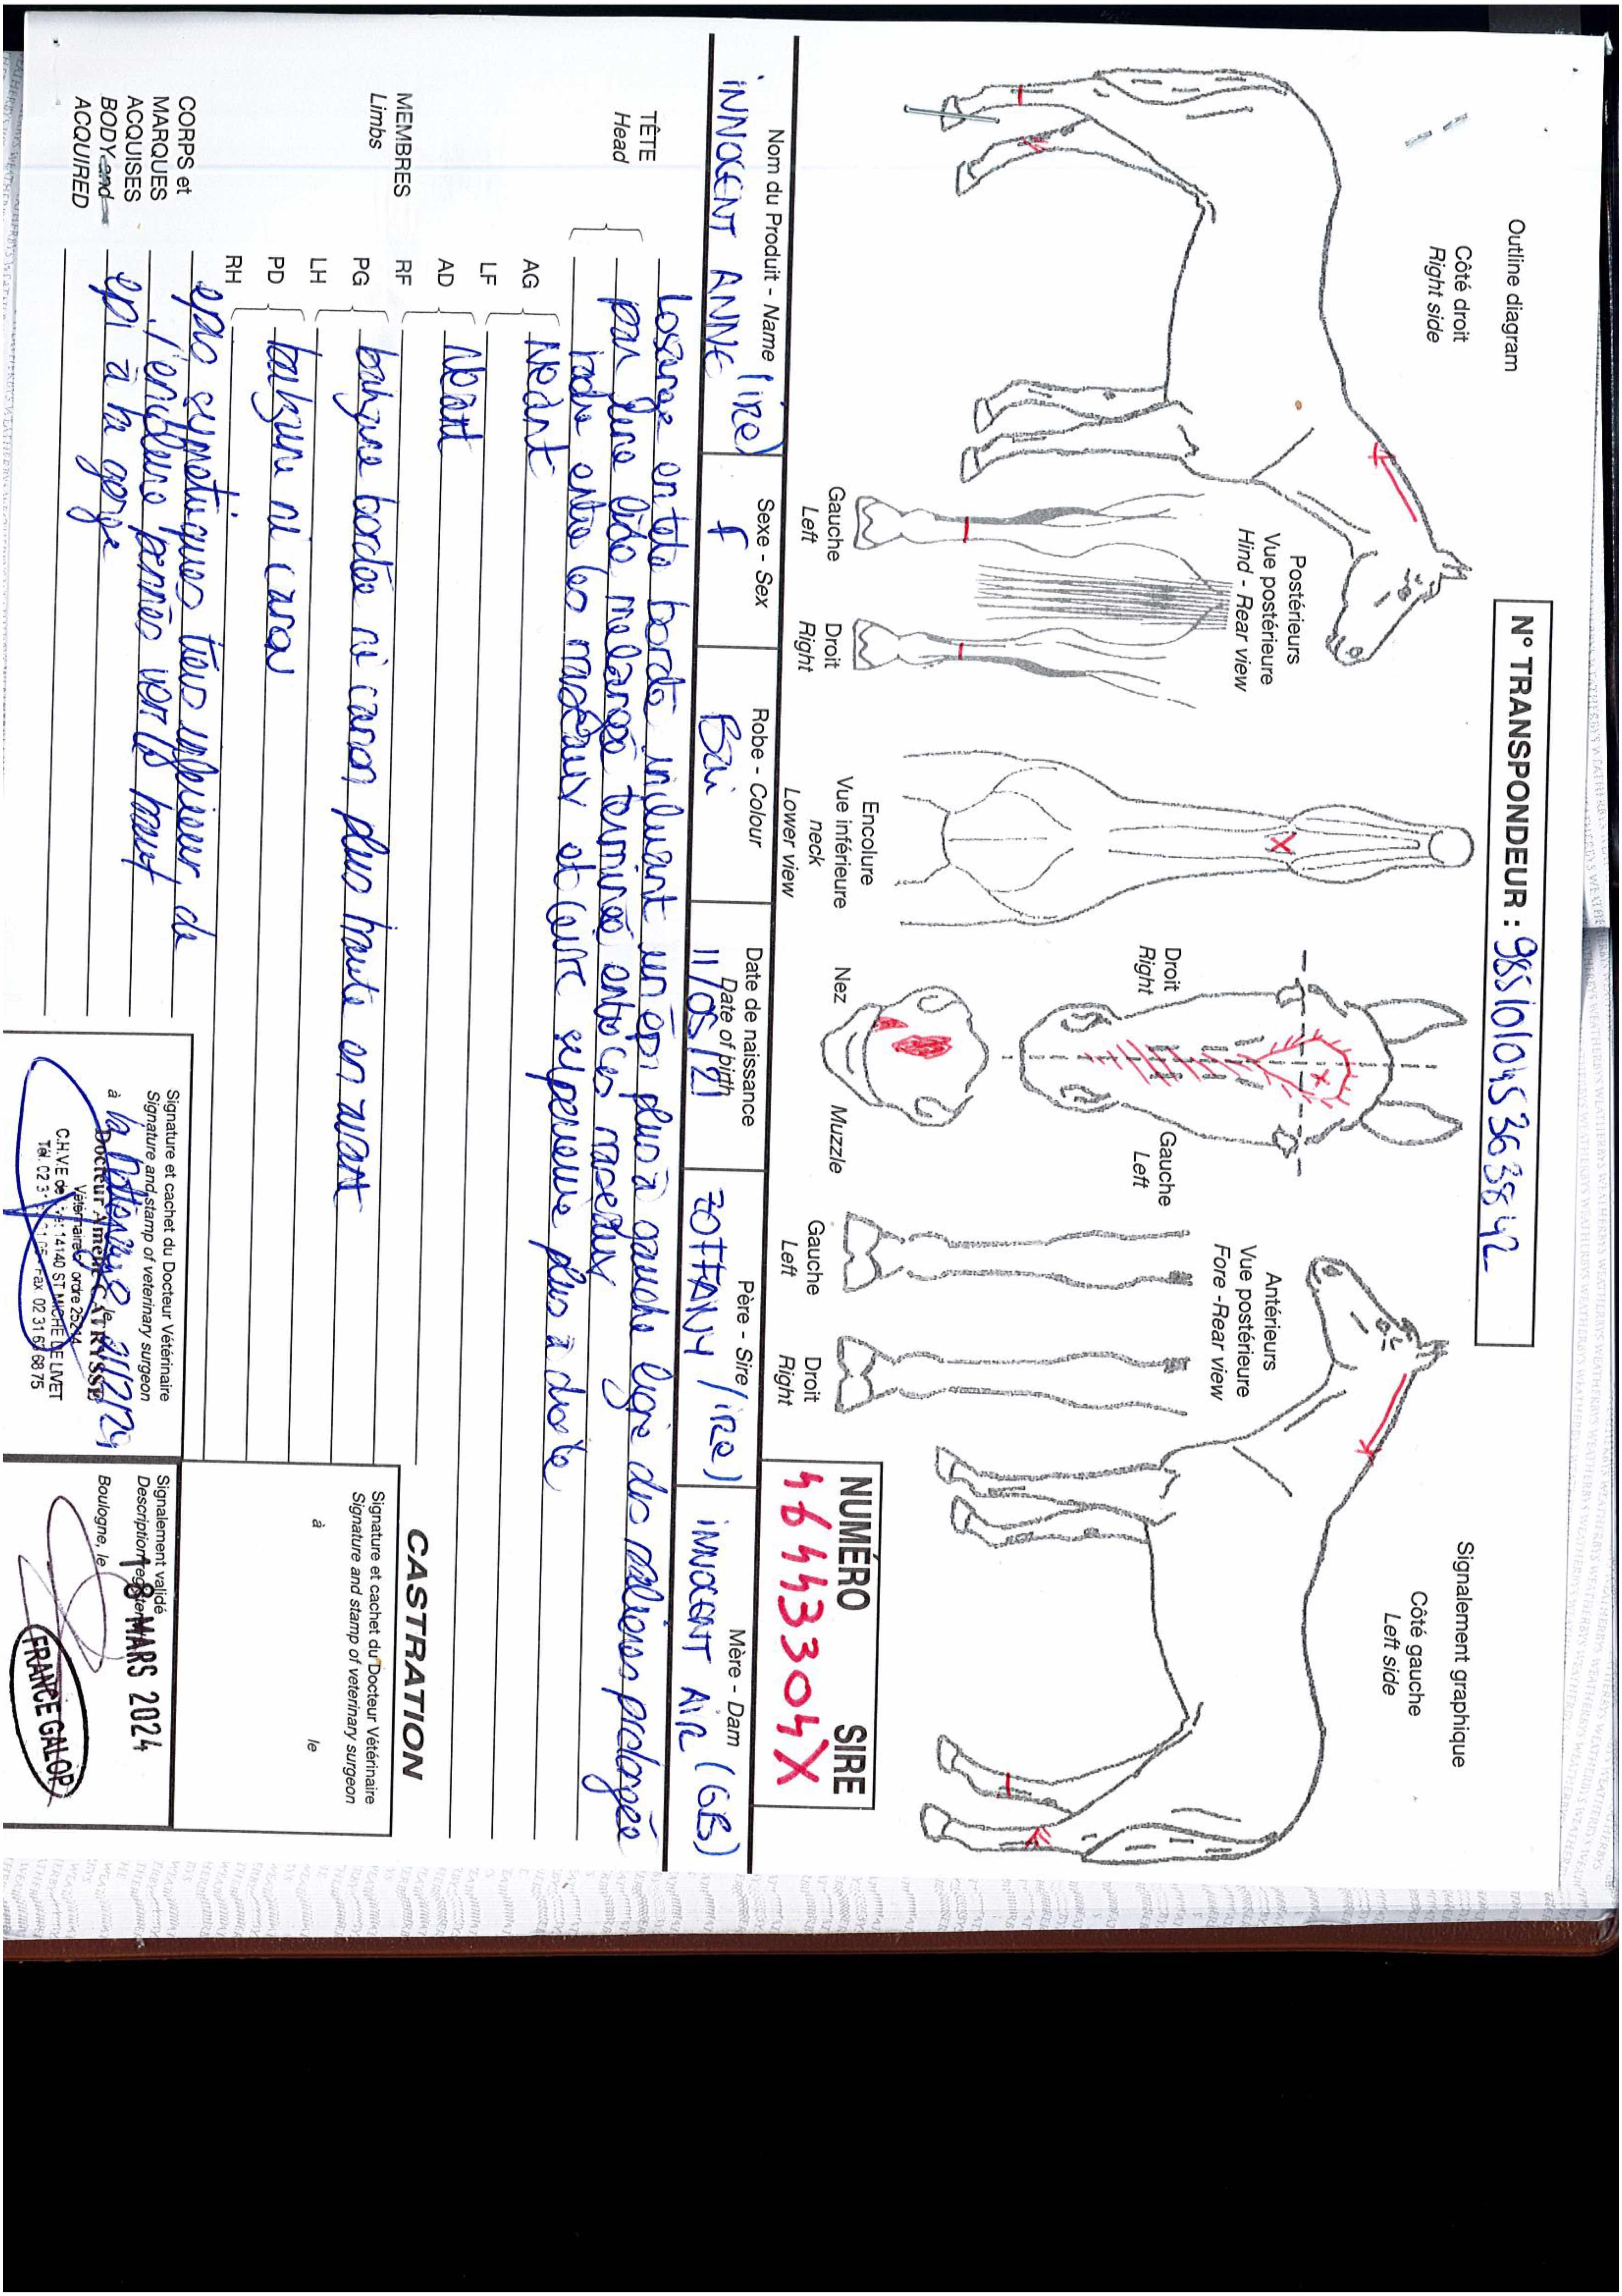 N° TRANSPONDEUR : 985101045363842
Outline diagram
Signalement graphique
Côté droit
Right side
Côté gauche
Left side
Postérieurs
Vue postérieure
Hind - Rear view
Gauche
Left
Droit
Right
Encolure
Vue inférieure
neck
Lower view
Droit
Right
Gauche
Left
Nez
Muzzle
Antérieurs
Vue postérieure
Fore -Rear view
Gauche
Left
Droit
Right
NUMÉRO SIRE
46443304X
Nom du Produit - Name
Sexe - Sex
Robe - Colour
Date de naissance
Date of birth
Père - Sire
Mère - Dam
INNOCENT ANNE (IRE)
f
Bai
11/05/21
ZOFFANY (IRE)
INNOCENT AIR (GB)
TÊTE
Head
Losange en tete bordé incluant un épi plus à gauche ligne des salieres prolongée
par fine liste melangée terminée entre les naseaux
ladre entre les naseaux et levre superieure plus à droite
MEMBRES
Limbs
AG
LF
Néant
AD
RF
Néant
PG
LH
balzane bordée mi canon plus haute en avant
PD
RH
balzane mi canon
CORPS et
MARQUES
ACQUISES
BODY and
ACQUIRED
epis symetriques tiers superieur de
l'encolure pennés vers le haut
epi à la gorge
CASTRATION
Signature et cachet du Docteur Vétérinaire
Signature and stamp of veterinary surgeon
à le
Signature et cachet du Docteur Vétérinaire
Signature and stamp of veterinary surgeon
à le
Docteur Amélie CATRYSSE
Vétérinaire ordre 25244
C.H.V.E de Livet 14140 ST MICHEL DE LIVET
Fax 02 31 63 68 75
Signalement validé
Description registered
Boulogne, le
18 MARS 2024
FRANCE GALOP